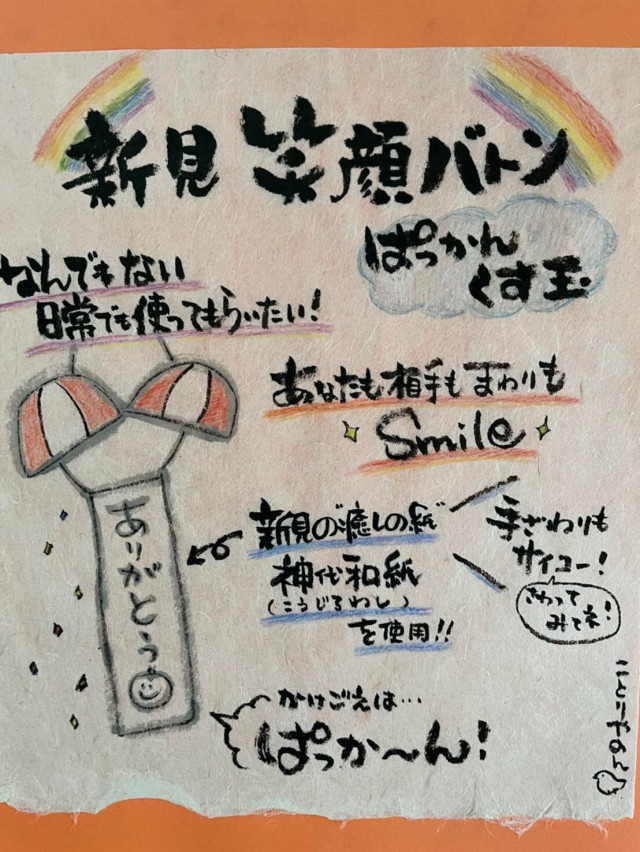 新見 笑顔バトン
ぱっかん
くす玉
なんでもない
日常でも使ってもらいたい!
あなたも相手もまわりも
Smile
ありがとう
新見の癒しの紙
神代和紙
(こうじろわし)
を使用!!
手ざわりも
サイコー!
さわって
みてネ!
かけごえは…
ぱっか〜ん!
ことりやのん